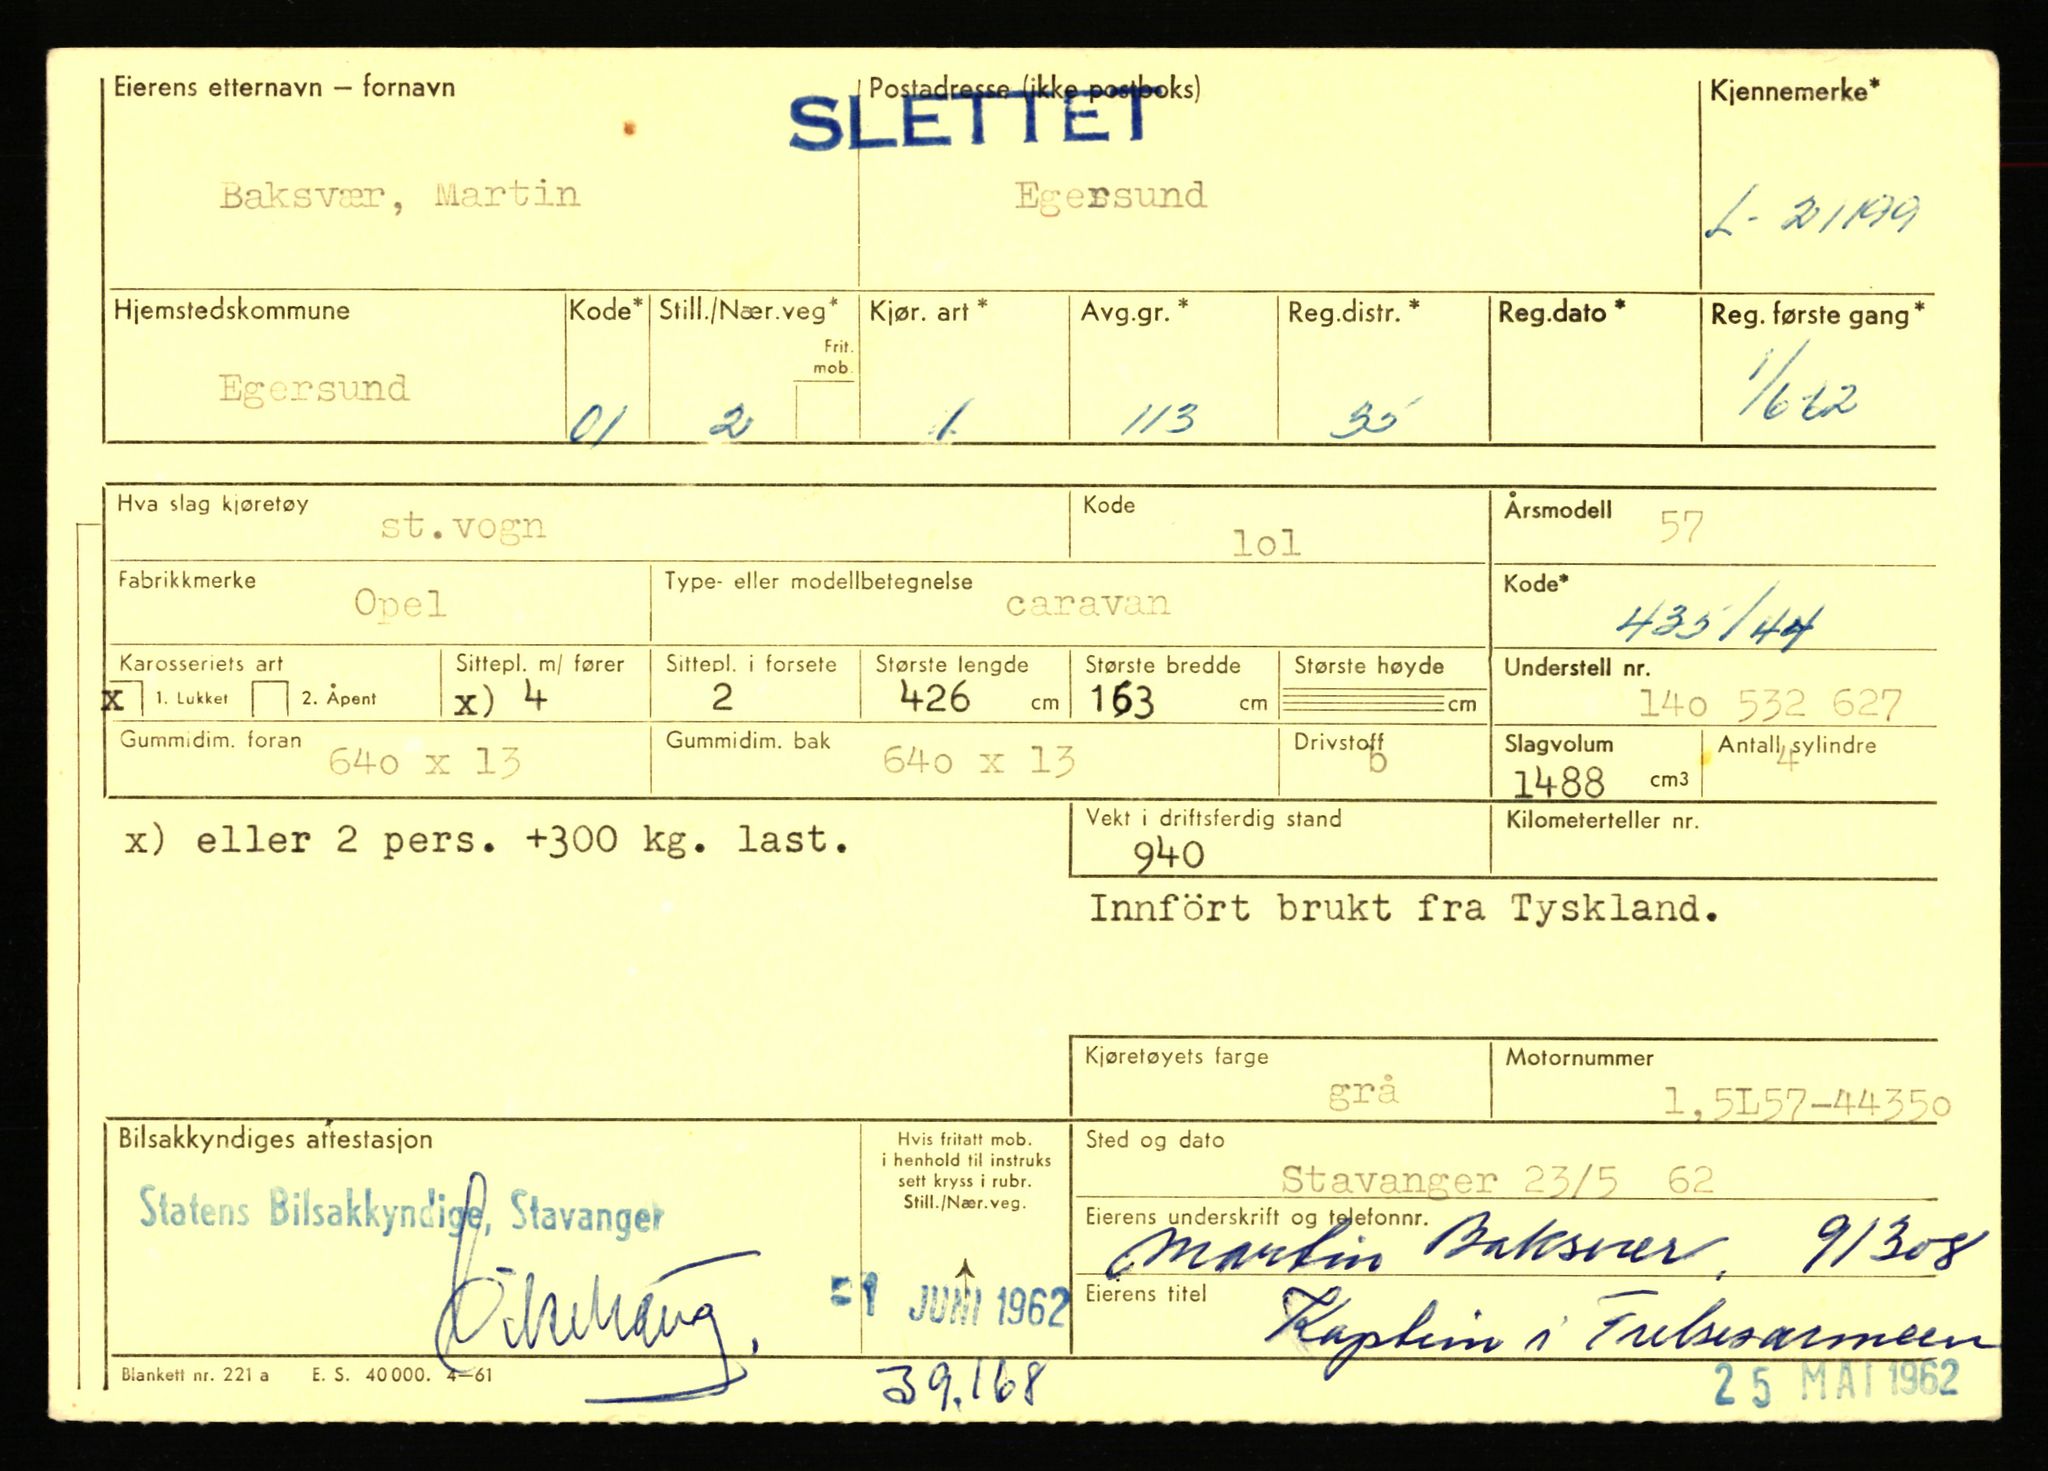 Eierens etternavn – fornavn
Postadresse (ikke postboks)
Kjennemerke*
SLETTET
Baksvær, Martin
Egersund
L- 21199
Hjemstedskommune
Kode*
Still./Nær.veg*
Frit. mob.
Kjør. art *
Avg.gr. *
Reg.distr. *
Reg.dato *
Reg. første gang*
Egersund
01
2
1
113
35
1/6-62
Hva slag kjøretøy
st.vogn
Kode
lol
Årsmodell
57
Fabrikkmerke
Opel
Type- eller modellbetegnelse
caravan
Kode*
435/44
Karosseriets art
x 1. Lukket 2. Åpent
Sittepl. m/ fører
x) 4
Sittepl. i forsete
2
Største lengde
426 cm
Største bredde
163 cm
Største høyde
cm
Understell nr.
14o 532 627
Gummidim. foran
64o x 13
Gummidim. bak
64o x 13
Drivstoff
b
Slagvolum
1488 cm3
Antall sylindre
4
x) eller 2 pers. +300 kg. last.
Vekt i driftsferdig stand
940
Kilometerteller nr.
Innfört brukt fra Tyskland.
Kjøretøyets farge
grå
Motornummer
1,5L57-4435o
Bilsakkyndiges attestasjon
Statens Bilsakkyndige, Stavanger
Hvis fritatt mob.
i henhold til instruks
sett kryss i rubr.
Still./Nær.veg.
-1 JUNI 1962
Sted og dato
Stavanger 23/5 62
Eierens underskrift og telefonnr.
Martin Baksvær, 91308
Eierens titel
Kaptein i Frelsesarmeen
Blankett nr. 221 a E. S. 40 000. 4–61
39.168
25 MAI 1962